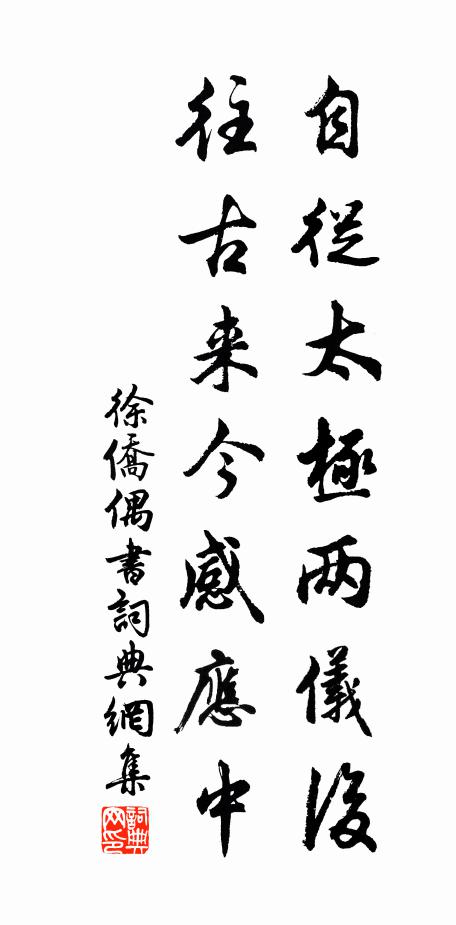 自從太極两儀後
往古来今感應中
徐僑偶書詞典網集
詞典网印